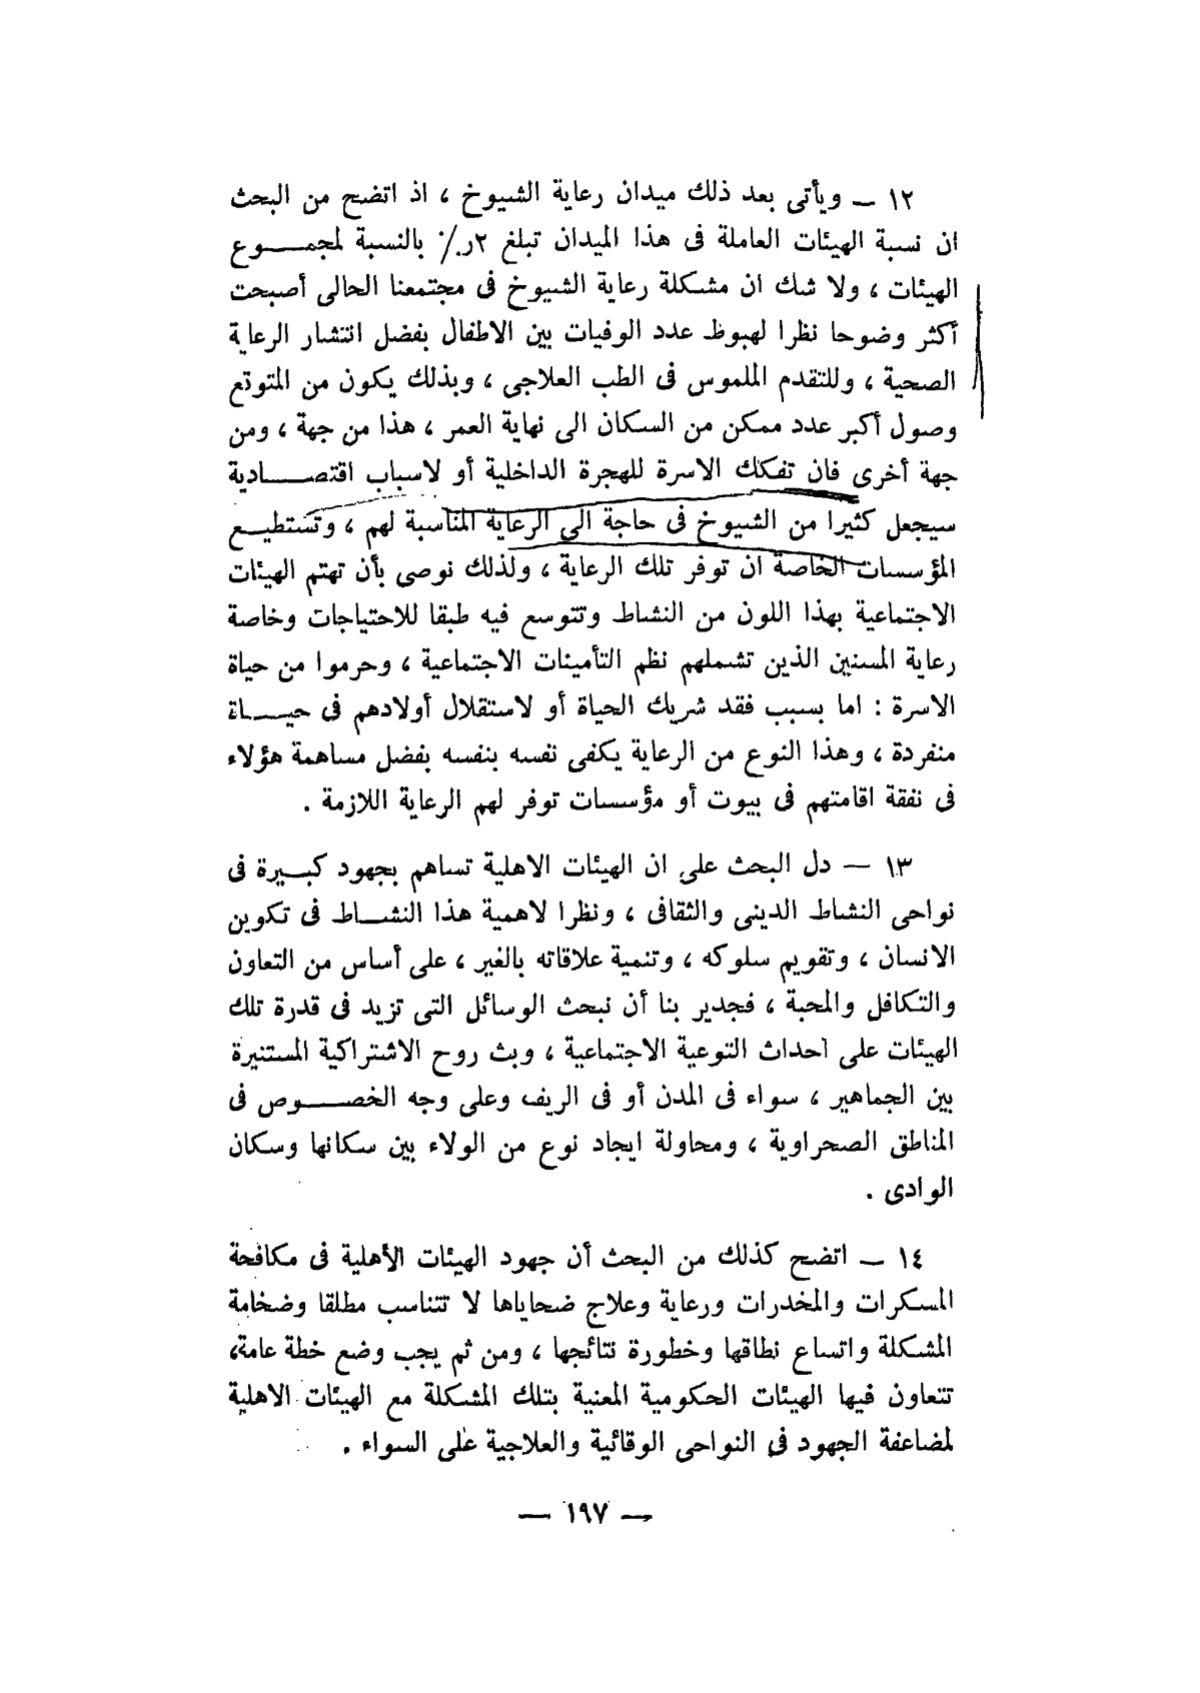 ١٢ — ويأتى بعد ذلك ميدان رعاية الشيوخ ، اذ اتضح من البحث
ان نسبة الهيئات العاملة فى هذا الميدان تبلغ ٢ر٠٪ بالنسبة لمجموع
الهيئات ، ولا شك ان مشكلة رعاية الشيوخ فى مجتمعنا الحالى أصبحت
أكثر وضوحا نظرا لهبوط عدد الوفيات بين الاطفال بفضل انتشار الرعاية
الصحية ، وللتقدم الملموس فى الطب العلاجى ، وبذلك يكون من المتوقع
وصول أكبر عدد ممكن من السكان الى نهاية العمر ، هذا من جهة ، ومن
جهة أخرى فان تفكك الاسرة للهجرة الداخلية أو لاسباب اقتصادية
سيجعل كثيرا من الشيوخ فى حاجة الى الرعاية المناسبة لهم ، وتستطيع
المؤسسات الخاصة ان توفر تلك الرعاية ، ولذلك نوصى بأن تهتم الهيئات
الاجتماعية بهذا اللون من النشاط وتتوسع فيه طبقا للاحتياجات وخاصة
رعاية المسنين الذين تشملهم نظم التأمينات الاجتماعية ، وحرموا من حياة
الاسرة : اما بسبب فقد شريك الحياة أو لاستقلال أولادهم فى حياة
منفردة ، وهذا النوع من الرعاية يكفى نفسه بنفسه بفضل مساهمة هؤلاء
فى نفقة اقامتهم فى بيوت أو مؤسسات توفر لهم الرعاية اللازمة .
١٣ — دل البحث على ان الهيئات الاهلية تساهم بجهود كبيرة فى
نواحى النشاط الدينى والثقافى ، ونظرا لاهمية هذا النشاط فى تكوين
الانسان ، وتقويم سلوكه ، وتنمية علاقاته بالغير ، على أساس من التعاون
والتكافل والمحبة ، فجدير بنا أن نبحث الوسائل التى تزيد فى قدرة تلك
الهيئات على احداث التوعية الاجتماعية ، وبث روح الاشتراكية المستنيرة
بين الجماهير ، سواء فى المدن أو فى الريف وعلى وجه الخصوص فى
المناطق الصحراوية ، ومحاولة ايجاد نوع من الولاء بين سكانها وسكان
الوادى .
١٤ — اتضح كذلك من البحث أن جهود الهيئات الأهلية فى مكافحة
المسكرات والمخدرات ورعاية وعلاج ضحاياها لا تتناسب مطلقا وضخامة
المشكلة واتساع نطاقها وخطورة نتائجها ، ومن ثم يجب وضع خطة عامة،
تتعاون فيها الهيئات الحكومية المعنية بتلك المشكلة مع الهيئات الاهلية
لمضاعفة الجهود فى النواحى الوقائية والعلاجية على السواء .
— ١٩٧ —